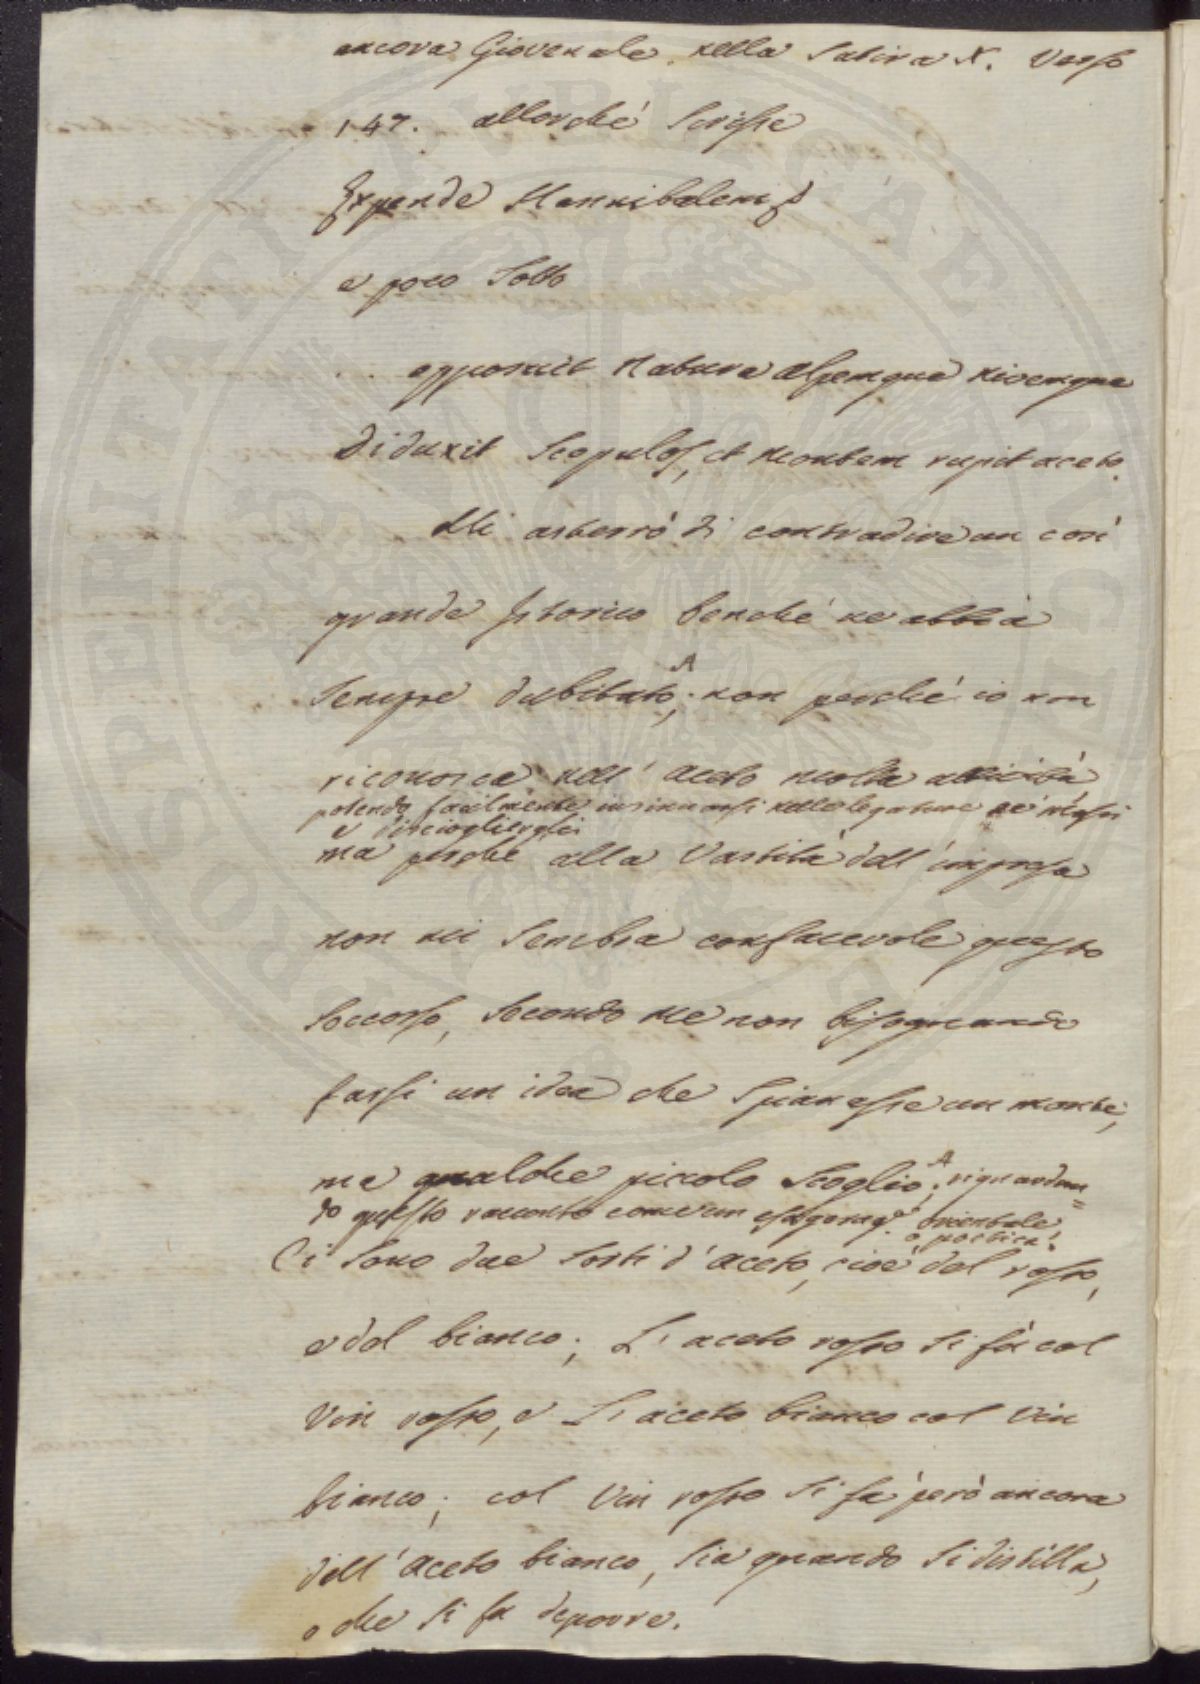 ancora Giovenale nella Satira X. Verso
147. allorché Scrisse
Expende Hannibalem
e poco Sotto
. . . opposuit Natura alpemque nivemque
Diduxit Scopulos, et montem rupit aceto.
Mi asterrò di contradire un così
grande Istorico benché ne abbia
Sempre dubitato; non perché io non
riconosca nell' aceto molta attività
potendo facilmente insinuarsi nelle legature de' Massi
e discioglierglie
ma perché alla Vastità dell' impresa
non mi Sembra confacevole questo
Soccorso, Secondo me non bisognando
farsi un idea che Spianasse un monte,
ma qualche piccolo Scoglio; riguardan=
do questo racconto come un esageraz.e orientale
o poetica.
Ci Sono due Sorti d'aceto, cioè del rosso,
e del bianco; L' aceto rosso Si fà col
Vin rosso, e L'aceto bianco col Vin
bianco; col Vin rosso Si fa però ancora
dell' aceto bianco, Sia quando Si distilla,
o che Si fa deporre.
PROSPERITATI PUBLICAE AUGENDAE